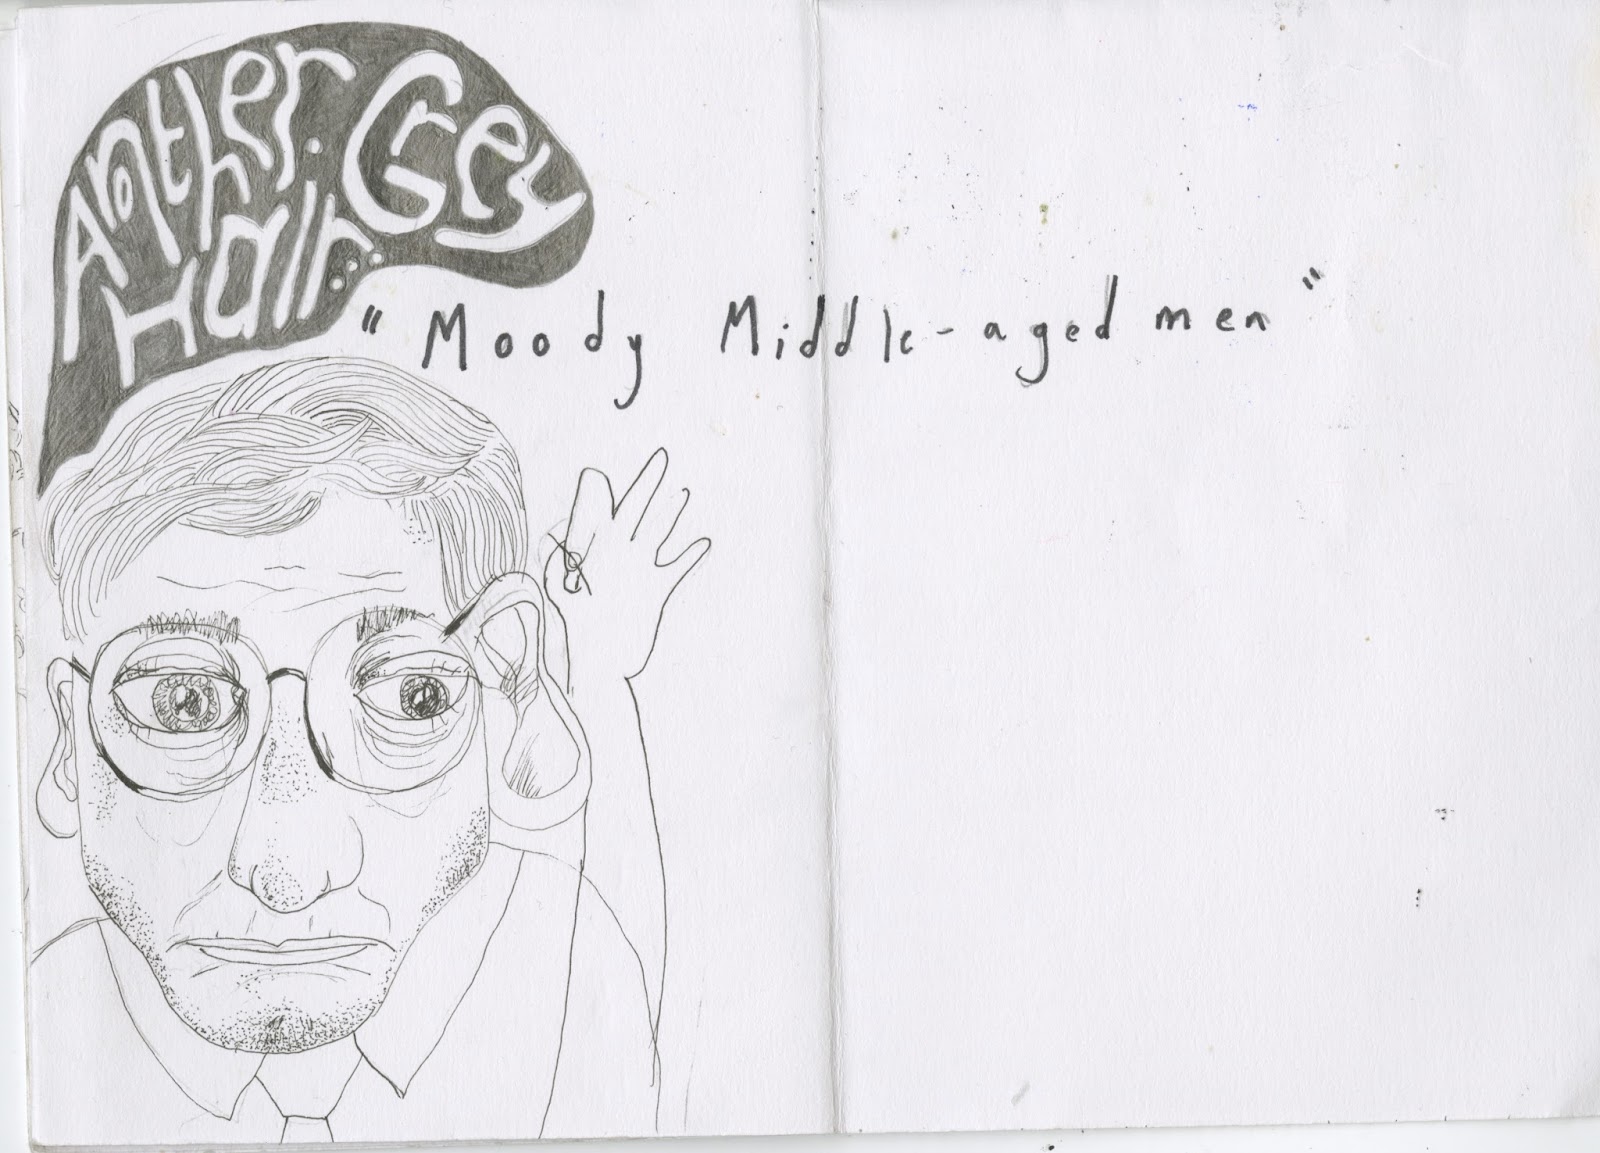 Another Grey
Hair...
"Moody Middle-aged men"